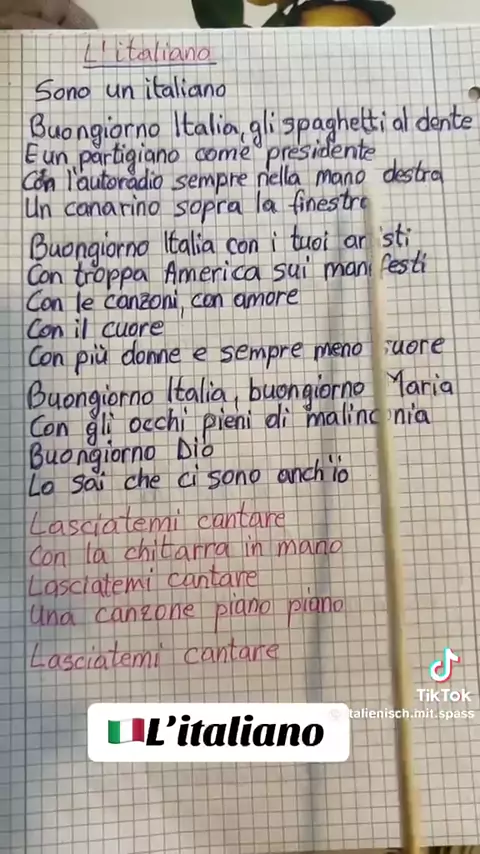 L'italiano
Sono un italiano
Buongiorno Italia, gli spaghetti al dente
E un partigiano come presidente
Con l'autoradio sempre nella mano destra
Un canarino sopra la finestra
Buongiorno Italia con i tuoi artisti
Con troppa America sui manifesti
Con le canzoni, con amore
Con il cuore
Con più donne e sempre meno suore
Buongiorno Italia, buongiorno Maria
Con gli occhi pieni di malinconia
Buongiorno Dio
Lo sai che ci sono anch'io
Lasciatemi cantare
Con la chitarra in mano
Lasciatemi cantare
Una canzone piano piano
Lasciatemi cantare
TikTok
italienisch.mit.spass
🇮🇹L'italiano